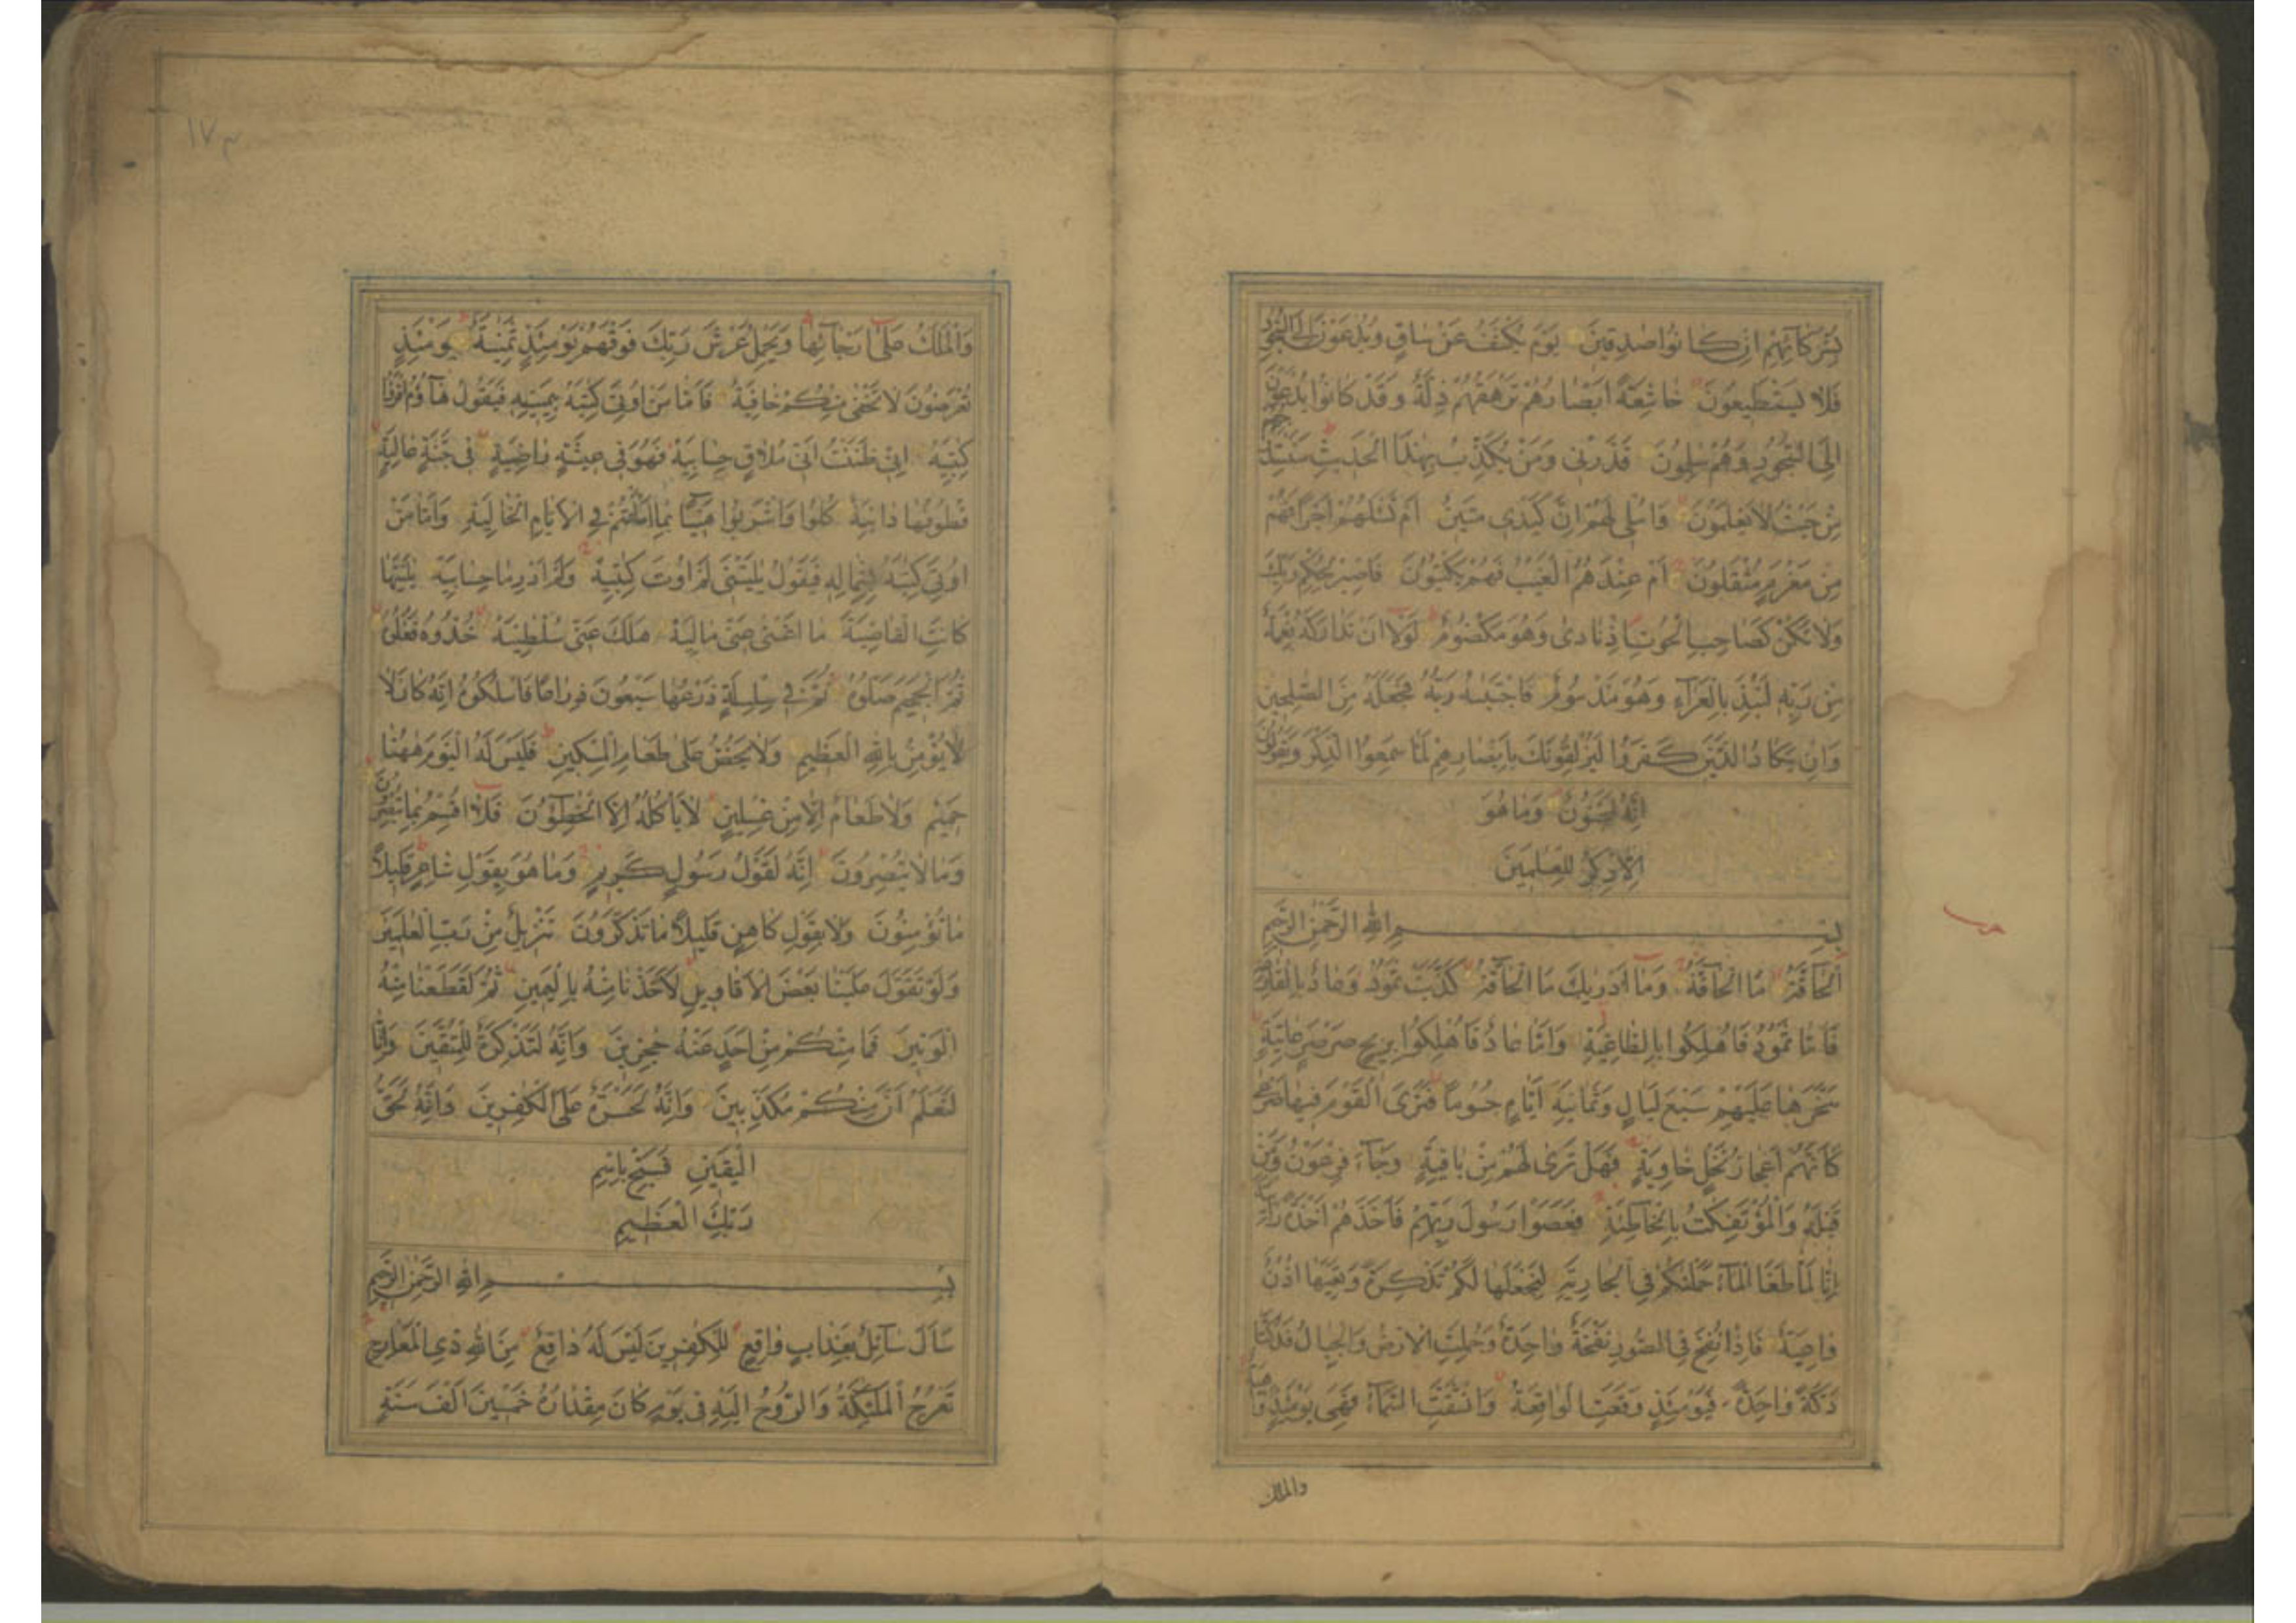 بِشُرَكَآئِهِمْ اِنْ كَانُوْا صٰدِقِيْنَ يَوْمَ يُكْشَفُ عَنْ سَاقٍ وَيُدْعَوْنَ اِلَى السُّجُوْدِ
فَلَا يَسْتَطِيْعُوْنَ خَاشِعَةً اَبْصَارُهُمْ تَرْهَقُهُمْ ذِلَّةٌ وَقَدْ كَانُوْا يُدْعَوْنَ
اِلَى السُّجُوْدِ وَهُمْ سٰلِمُوْنَ فَذَرْنِيْ وَمَنْ يُكَذِّبُ بِهٰذَا الْحَدِيْثِ سَنَسْتَدْرِجُهُمْ
مِنْ حَيْثُ لَا يَعْلَمُوْنَ وَاُمْلِيْ لَهُمْ اِنَّ كَيْدِيْ مَتِيْنٌ اَمْ تَسْئَلُهُمْ اَجْرًا فَهُمْ
مِنْ مَغْرَمٍ مُثْقَلُوْنَ اَمْ عِنْدَهُمُ الْغَيْبُ فَهُمْ يَكْتُبُوْنَ فَاصْبِرْ لِحُكْمِ رَبِّكَ
وَلَا تَكُنْ كَصَاحِبِ الْحُوْتِ اِذْ نَادٰى وَهُوَ مَكْضُوْمٌ لَوْلَا اَنْ تَدَارَكَهُ نِعْمَةٌ
مِنْ رَبِّهِ لَنُبِذَ بِالْعَرَآءِ وَهُوَ مَذْمُوْمٌ فَاجْتَبٰىهُ رَبُّهُ فَجَعَلَهُ مِنَ الصّٰلِحِيْنَ
وَاِنْ يَكَادُ الَّذِيْنَ كَفَرُوْا لَيُزْلِقُوْنَكَ بِاَبْصَارِهِمْ لَمَّا سَمِعُوا الذِّكْرَ وَيَقُوْلُوْنَ
اِنَّهُ لَمَجْنُوْنٌ وَمَا هُوَ
اِلَّا ذِكْرٌ لِلْعٰلَمِيْنَ
بِسْمِ اللهِ الرَّحْمٰنِ الرَّحِيْمِ
اَلْحَآقَّةُ مَا الْحَآقَّةُ وَمَا اَدْرٰىكَ مَا الْحَآقَّةُ كَذَّبَتْ ثَمُوْدُ وَعَادٌ بِالْقَارِعَةِ
فَاَمَّا ثَمُوْدُ فَاُهْلِكُوْا بِالطَّاغِيَةِ وَاَمَّا عَادٌ فَاُهْلِكُوْا بِرِيْحٍ صَرْصَرٍ عَاتِيَةٍ
سَخَّرَهَا عَلَيْهِمْ سَبْعَ لَيَالٍ وَثَمَانِيَةَ اَيَّامٍ حُسُوْمًا فَتَرَى الْقَوْمَ فِيْهَا صَرْعٰى
كَاَنَّهُمْ اَعْجَازُ نَخْلٍ خَاوِيَةٍ فَهَلْ تَرٰى لَهُمْ مِنْ بَاقِيَةٍ وَجَآءَ فِرْعَوْنُ وَمَنْ
قَبْلَهُ وَالْمُؤْتَفِكٰتُ بِالْخَاطِئَةِ فَعَصَوْا رَسُوْلَ رَبِّهِمْ فَاَخَذَهُمْ اَخْذَةً رَابِيَةً
اِنَّا لَمَّا طَغَا الْمَآءُ حَمَلْنٰكُمْ فِي الْجَارِيَةِ لِنَجْعَلَهَا لَكُمْ تَذْكِرَةً وَتَعِيَهَا اُذُنٌ
وَاعِيَةٌ فَاِذَا نُفِخَ فِي الصُّوْرِ نَفْخَةٌ وَاحِدَةٌ وَحُمِلَتِ الْاَرْضُ وَالْجِبَالُ فَدُكَّتَا
دَكَّةً وَاحِدَةً فَيَوْمَئِذٍ وَقَعَتِ الْوَاقِعَةُ وَانْشَقَّتِ السَّمَآءُ فَهِيَ يَوْمَئِذٍ وَاهِيَةٌ
والملك
١٧٣
وَالْمَلَكُ عَلٰى اَرْجَآئِهَا وَيَحْمِلُ عَرْشَ رَبِّكَ فَوْقَهُمْ يَوْمَئِذٍ ثَمٰنِيَةٌ يَوْمَئِذٍ
تُعْرَضُوْنَ لَا تَخْفٰى مِنْكُمْ خَافِيَةٌ فَاَمَّا مَنْ اُوْتِيَ كِتٰبَهُ بِيَمِيْنِهِ فَيَقُوْلُ هَآؤُمُ اقْرَؤُا
كِتٰبِيَهْ اِنِّيْ ظَنَنْتُ اَنِّيْ مُلَاقٍ حِسَابِيَهْ فَهُوَ فِيْ عِيْشَةٍ رَاضِيَةٍ فِيْ جَنَّةٍ عَالِيَةٍ
قُطُوْفُهَا دَانِيَةٌ كُلُوْا وَاشْرَبُوْا هَنِيْئًا بِمَا اَسْلَفْتُمْ فِي الْاَيَّامِ الْخَالِيَةِ وَاَمَّا مَنْ
اُوْتِيَ كِتٰبَهُ بِشِمَالِهِ فَيَقُوْلُ يٰلَيْتَنِيْ لَمْ اُوْتَ كِتٰبِيَهْ وَلَمْ اَدْرِ مَا حِسَابِيَهْ يٰلَيْتَهَا
كَانَتِ الْقَاضِيَةَ مَا اَغْنٰى عَنِّيْ مَالِيَهْ هَلَكَ عَنِّيْ سُلْطٰنِيَهْ خُذُوْهُ فَغُلُّوْهُ
ثُمَّ الْجَحِيْمَ صَلُّوْهُ ثُمَّ فِيْ سِلْسِلَةٍ ذَرْعُهَا سَبْعُوْنَ ذِرَاعًا فَاسْلُكُوْهُ اِنَّهُ كَانَ لَا
لَا يُؤْمِنُ بِاللهِ الْعَظِيْمِ وَلَا يَحُضُّ عَلٰى طَعَامِ الْمِسْكِيْنِ فَلَيْسَ لَهُ الْيَوْمَ هٰهُنَا
حَمِيْمٌ وَلَا طَعَامٌ اِلَّا مِنْ غِسْلِيْنٍ لَا يَاْكُلُهُ اِلَّا الْخٰطِؤُنَ فَلَا اُقْسِمُ بِمَا تُبْصِرُوْنَ
وَمَا لَا تُبْصِرُوْنَ اِنَّهُ لَقَوْلُ رَسُوْلٍ كَرِيْمٍ وَمَا هُوَ بِقَوْلِ شَاعِرٍ قَلِيْلًا
مَا تُؤْمِنُوْنَ وَلَا بِقَوْلِ كَاهِنٍ قَلِيْلًا مَا تَذَكَّرُوْنَ تَنْزِيْلٌ مِنْ رَبِّ الْعٰلَمِيْنَ
وَلَوْ تَقَوَّلَ عَلَيْنَا بَعْضَ الْاَقَاوِيْلِ لَاَخَذْنَا مِنْهُ بِالْيَمِيْنِ ثُمَّ لَقَطَعْنَا مِنْهُ
الْوَتِيْنَ فَمَا مِنْكُمْ مِنْ اَحَدٍ عَنْهُ حٰجِزِيْنَ وَاِنَّهُ لَتَذْكِرَةٌ لِلْمُتَّقِيْنَ وَاِنَّا
لَنَعْلَمُ اَنَّ مِنْكُمْ مُكَذِّبِيْنَ وَاِنَّهُ لَحَسْرَةٌ عَلَى الْكٰفِرِيْنَ وَاِنَّهُ لَحَقُّ
الْيَقِيْنِ فَسَبِّحْ بِاسْمِ
رَبِّكَ الْعَظِيْمِ
بِسْمِ اللهِ الرَّحْمٰنِ الرَّحِيْمِ
سَاَلَ سَآئِلٌ بِعَذَابٍ وَاقِعٍ لِلْكٰفِرِيْنَ لَيْسَ لَهُ دَافِعٌ مِنَ اللهِ ذِي الْمَعَارِجِ
تَعْرُجُ الْمَلٰٓئِكَةُ وَالرُّوْحُ اِلَيْهِ فِيْ يَوْمٍ كَانَ مِقْدَارُهُ خَمْسِيْنَ اَلْفَ سَنَةٍ